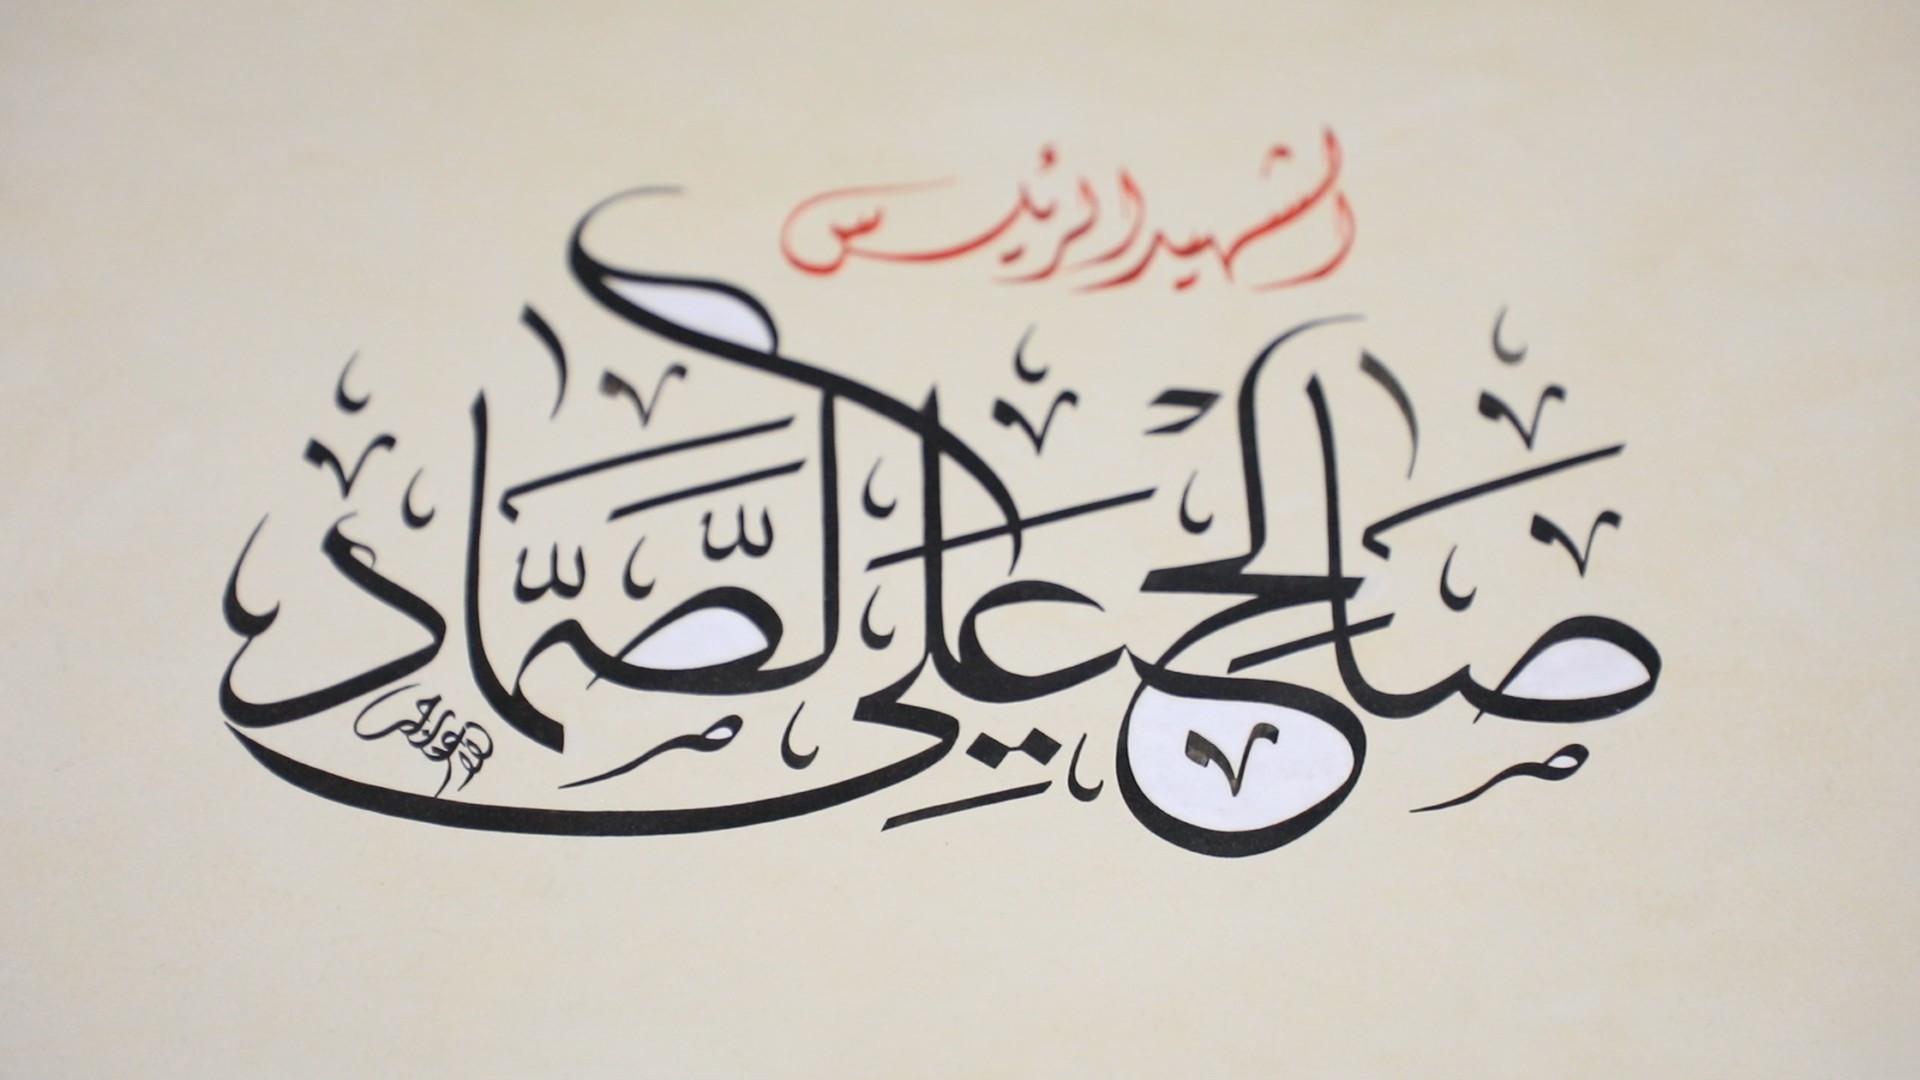 الشهيد الرئيس
صَالِح عَلِي الصَّمَّاد